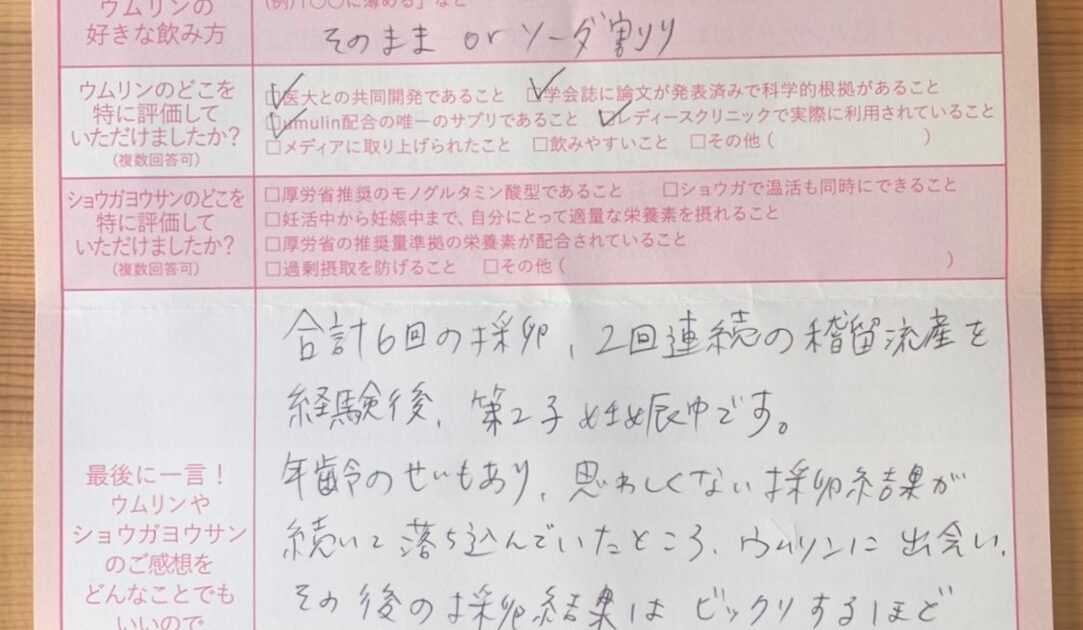 ウムリンの
好きな飲み方
(例)「○○に薄める」など
そのまま or ソーダ割り
ウムリンのどこを
特に評価して
いただけましたか?
(複数回答可)
☑医大との共同開発であること ☑学会誌に論文が発表済みで科学的根拠があること
☑umulin配合の唯一のサプリであること ☑レディースクリニックで実際に利用されていること
□メディアに取り上げられたこと □飲みやすいこと □その他( )
ショウガヨウサンのどこを
特に評価して
いただけましたか?
(複数回答可)
□厚労省推奨のモノグルタミン酸型であること □ショウガで温活も同時にできること
□妊活中から妊娠中まで、自分にとって適量な栄養素を摂れること
□厚労省の推奨量準拠の栄養素が配合されていること
□過剰摂取を防げること □その他( )
最後に一言!
ウムリンや
ショウガヨウサン
のご感想を
どんなことでも
いいので
合計6回の採卵、2回連続の稽留流産を
経験後、第2子妊娠中です。
年齢のせいもあり、思わしくない採卵結果が
続いて落ち込んでいたところ、ウムリンに出会い、
その後の採卵結果はビックリするほど